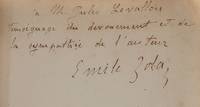 à M. Jules Levallois
témoignage du dévouement et de
la sympathie de l'auteur
Emile Zola